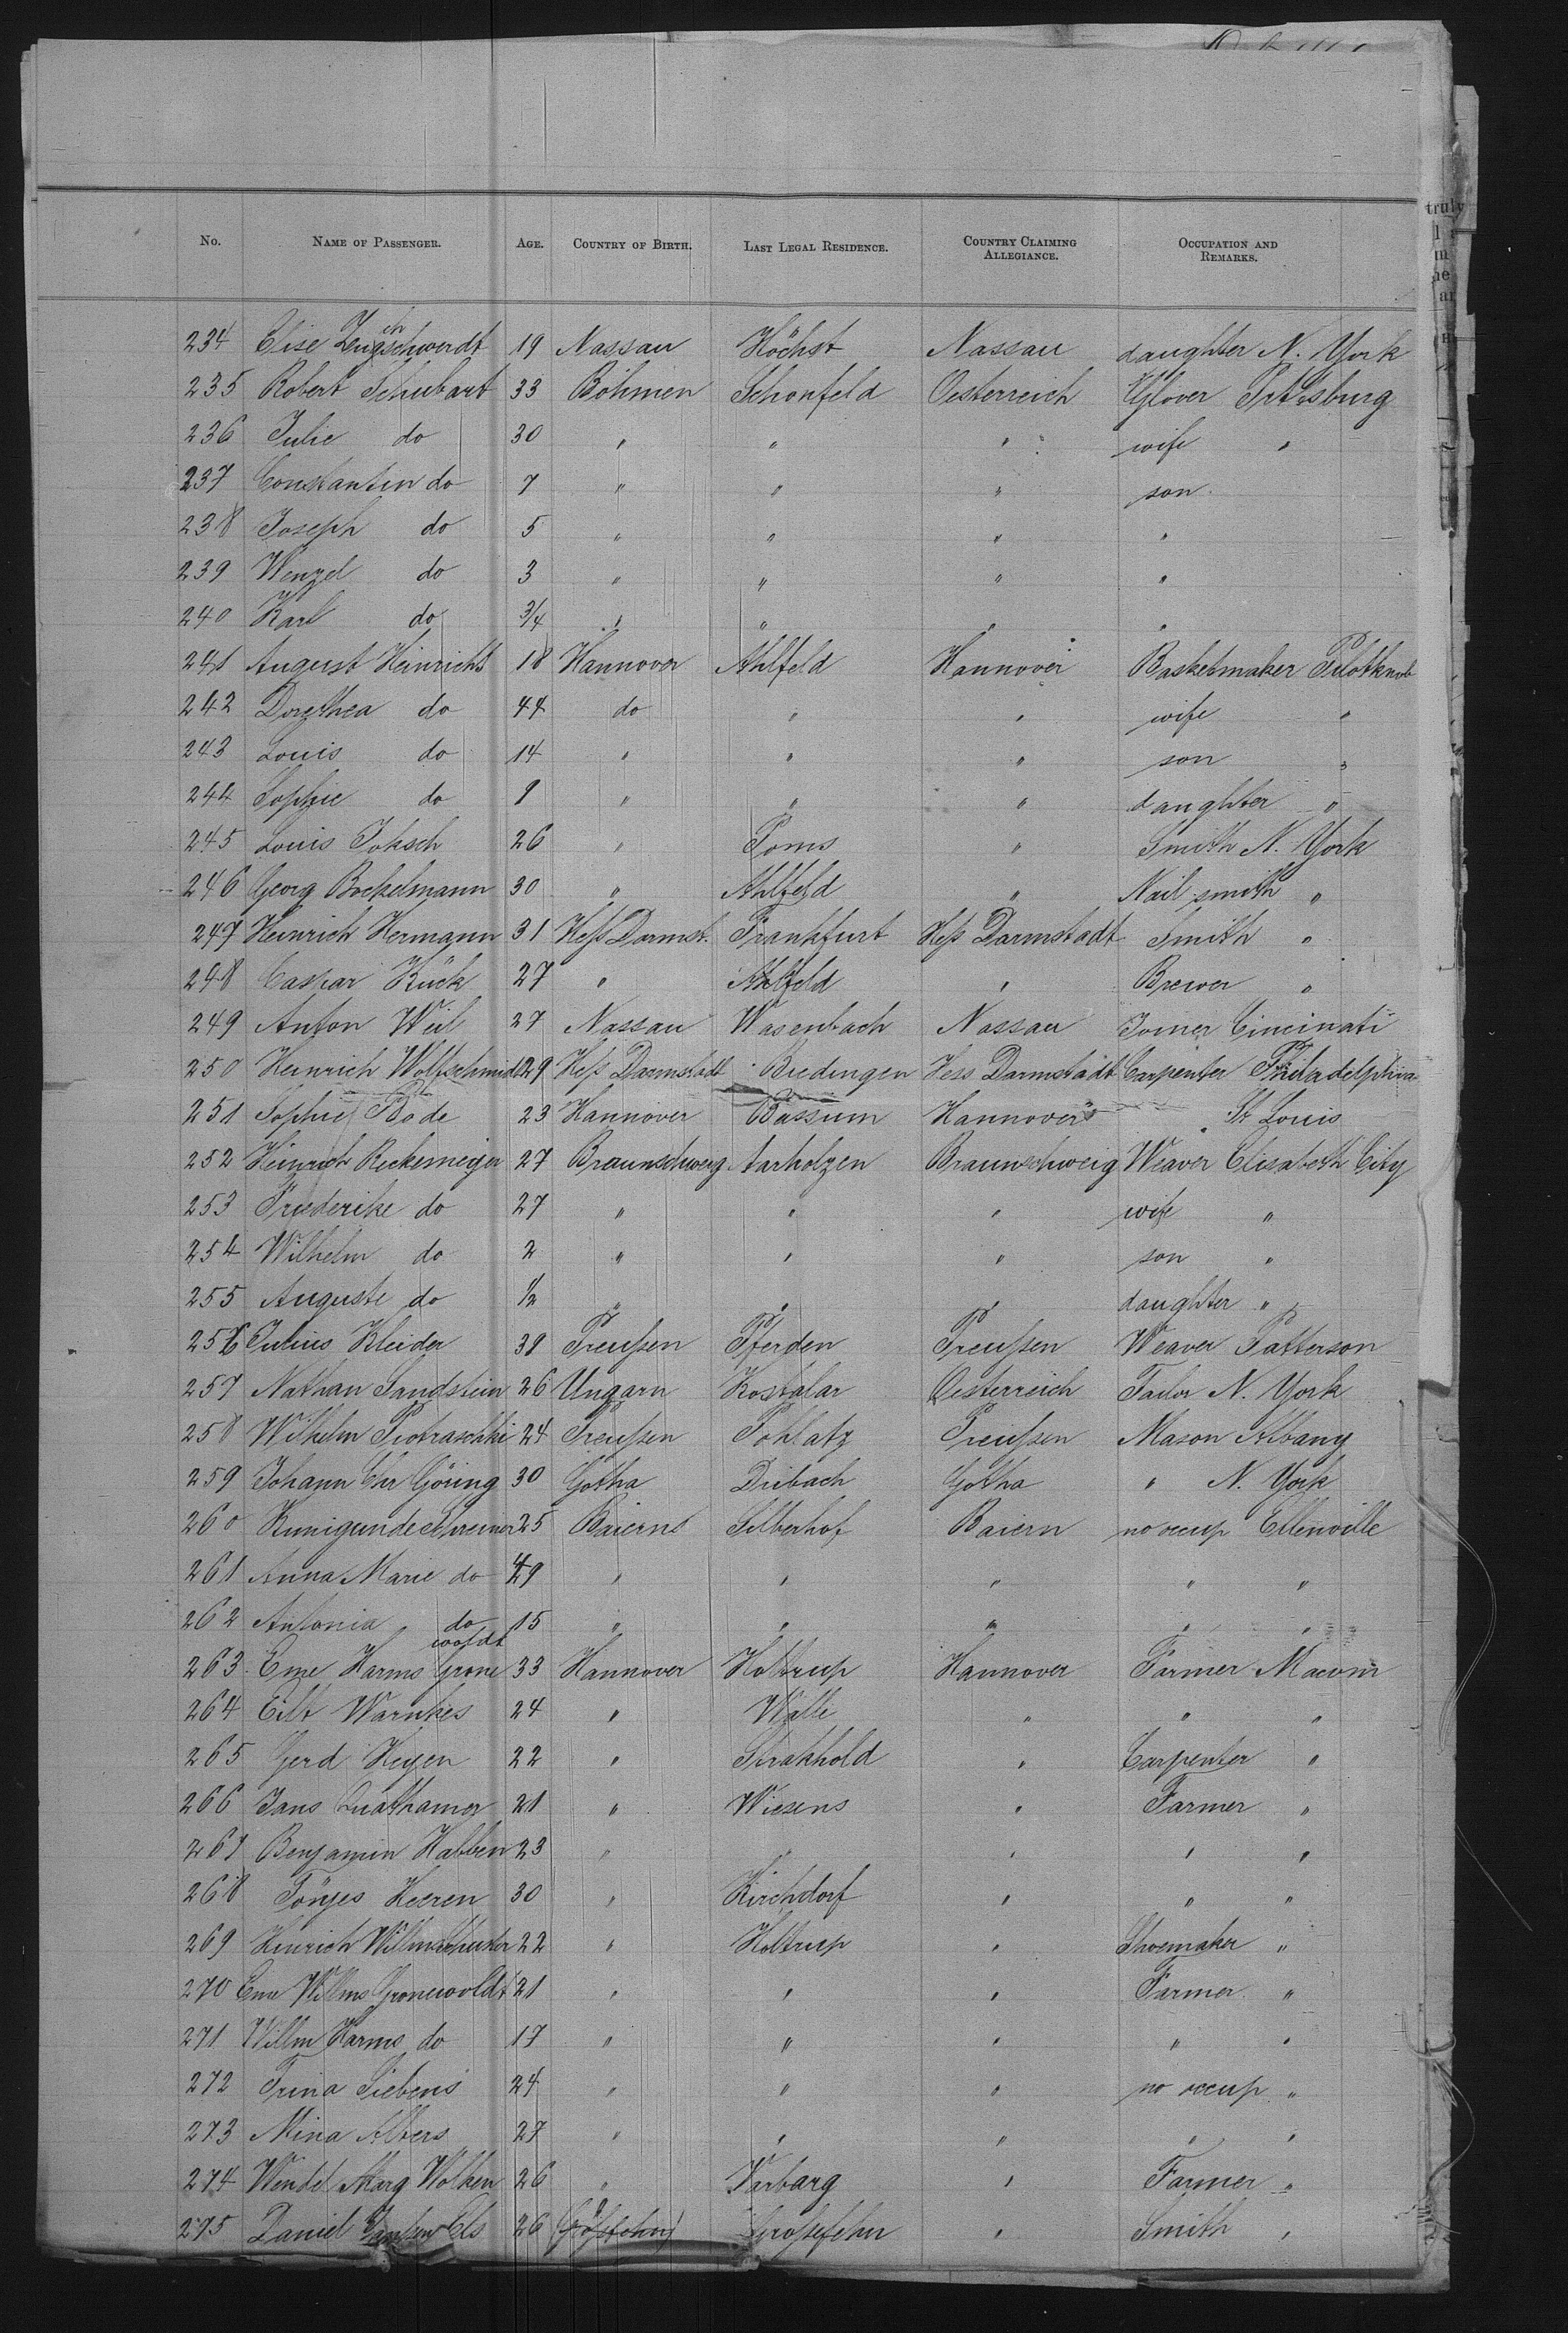 No. NAME OF PASSENGER. AGE. COUNTRY OF BIRTH. LAST LEGAL RESIDENCE. COUNTRY CLAIMING ALLEGIANCE. OCCUPATION AND REMARKS.
234 Elise 19 Nassau Höchst Nassau daughter N. York
235 Robert Schubart 33 Böhmen Schonfeld Oesterreich Glover
236 Julie do 30 " " " wife "
237 Constantin do 7 " " " son
238 Joseph do 5 " " " "
239 Wenzel do 3 " " " "
240 Karl do 3/4 " " " "
241 August Heinrichs 18 Hannover Ahlfeld Hannover Basketmaker Pilotknob
242 Dorethea do 44 do " " wife "
243 Louis do 14 " " " son "
244 Sophie do 9 " " " daughter "
245 Louis Joksch 26 " Poms " Smith N. York
246 Georg Bockelmann 30 " Ahlfeld " Nail smith "
247 Heinrich Hermann 31 Heß Darmst. Frankfurt Heß Darmstadt Smith "
248 Caspar Kück 27 " Ahlfeld " Brewer "
249 Anton Weil 27 Nassau Wasenbach Nassau Joiner Cincinati
250 Heinrich Wolfschmidt 29 Heß Darmstadt Biedingen Hess Darmstadt Carpenter Philadelphia
251 Sophie Bode 23 Hannover Bassum Hannover " St Louis
252 Heinrich Reckemeijer 27 Braunschweig Aarholzen Braunschweig Weaver Elisabeth City
253 Friederike do 27 " " " wife "
254 Wilhelm do 2 " " " son "
255 Auguste do 1/2 " " " daughter "
256 Julius Kleider 31 Preußen Pferden Preußen Weaver Patterson
257 Nathan Sandstein 26 Ungarn Kostalar Oesterreich Tailor N. York
258 Wilhelm Piotraschki 24 Preußen Pohlatz Preußen Mason Albany
259 Johann Chr Göring 30 Gotha Diebach Gotha " N. York
260 Kunigunde Schreiner 25 Baierns Silberhof Baiern no occup Ellenville
261 Anna Marie do 49 " " " " "
262 Antonia do 15 " " " " "
woldt
263 Eme Harms Grone 33 Hannover Holtrup Hannover Farmer Macom
264 Eilt Warnkes 24 " Walle " " "
265 Gerd Heyen 22 " Strakhold " Carpenter "
266 Jans Quathamer 21 " Wiesens " Farmer "
267 Benjamin Habben 23 " " " " "
268 Tönjes Heeren 30 " Kirchdorf " " "
269 Hinrich 22 " Holtrup " Shoemaker "
270 Eme Willms Gronewoldt 21 " " " Farmer "
271 Willm Harms do 17 " " " " "
272 Trina Siebens 24 " " " no occup "
273 Mina Albers 27 " " " " "
274 Wendel Marg Wolken 26 " Varbarg " Farmer "
275 Daniel Janßen Els 26 Großefehn " Smith "
truly